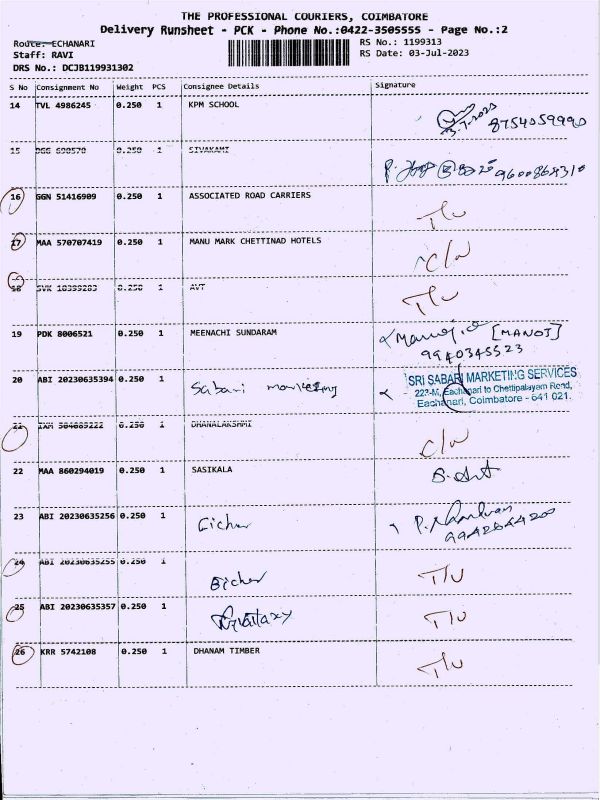 THE PROFESSIONAL COURIERS, COIMBATORE
Delivery Runsheet - PCK - Phone No.:0422-3505555 - Page No.:2
Route: ECHANARI
RS No.: 1199313
Staff: RAVI
RS Date: 03-Jul-2023
DRS No.: DCJB119931302
S No Consignment No Weight PCS Consignee Details Signature
14 TVL 4986245 0.250 1 KPM SCHOOL
8754059990
15 0.250 1 SIVAKAMI
16 GGN 51416909 0.250 1 ASSOCIATED ROAD CARRIERS T/U
17 MAA 570707419 0.250 1 MANU MARK CHETTINAD HOTELS C/N
18 SVK 0.250 1 AVT T/U
19 PDK 8006521 0.250 1 MEENACHI SUNDARAM Manoj [MANOJ]
9940345523
20 ABI 20230635394 0.250 1 Sabari marketing SRI SABARI MARKETING SERVICES
Eachanari to Chettipalayam Road,
Eachanari, Coimbatore - 641 021.
21 0.250 1 DHANALAKSHMI C/N
22 MAA 860294019 0.250 1 SASIKALA
23 ABI 20230635256 0.250 1 Eicher
24 ABI 20230635255 0.250 1 Eicher T/U
25 ABI 20230635357 0.250 1 Galaxy T/U
26 KRR 5742108 0.250 1 DHANAM TIMBER T/U